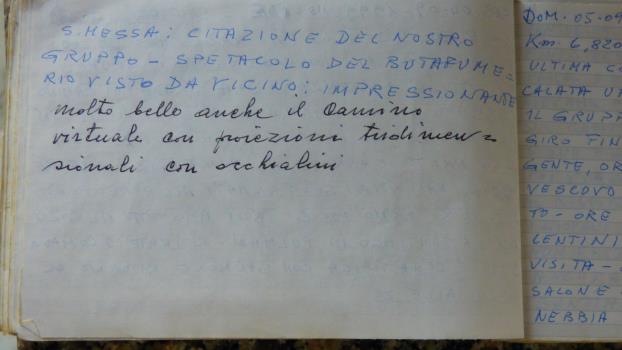 S. MESSA: CITAZIONE DEL NOSTRO
GRUPPO - SPETACOLO DEL BUTAFUME=
RIO VISTO DA VICINO: IMPRESSIONANTE
molto bello anche il Camino
virtuale con proiezioni tridimen=
sionali con occhialini
DOM. 05-09
Km. 6,820
ULTIMA
CALATA
IL GRUPP
GIRO FIN
GENTE, OR
VESCOVO
TO - ORE
LENTINI
VISITA -
SALONE
NEBBIA